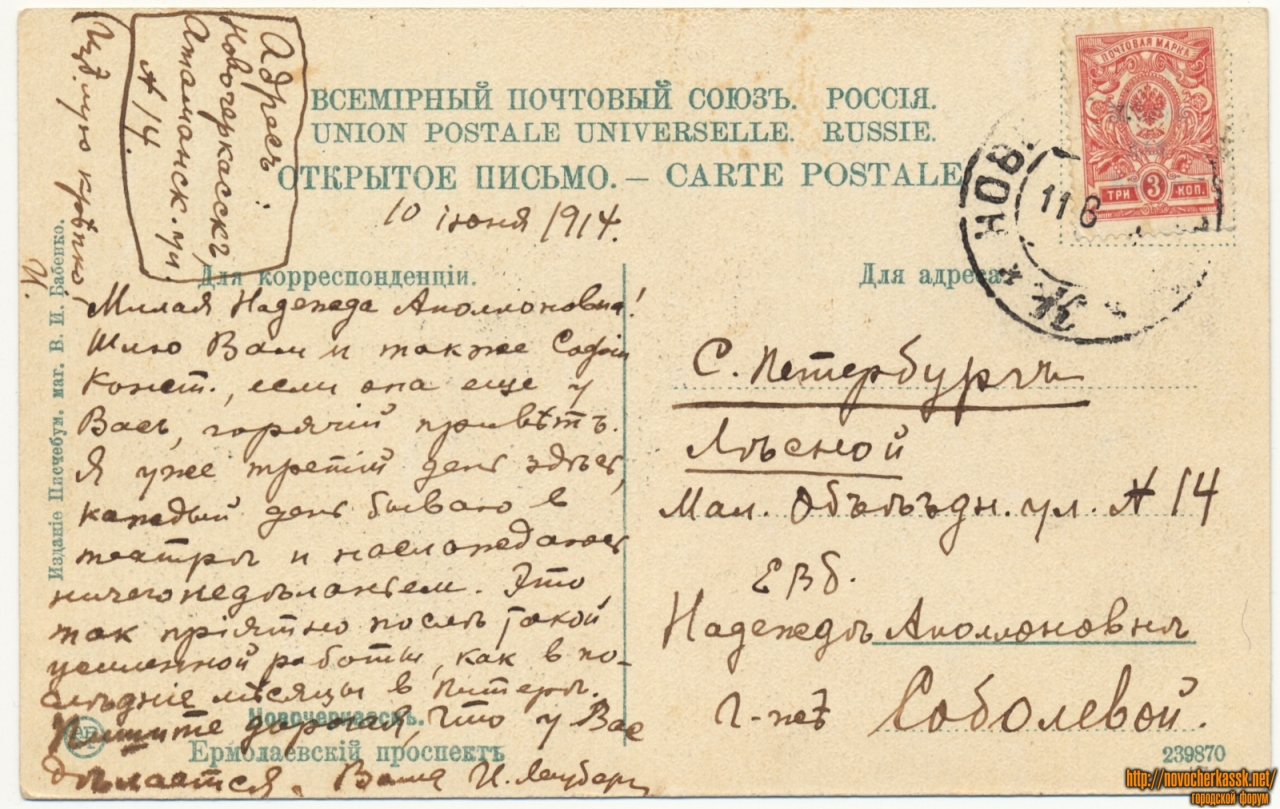 ВСЕМІРНЫЙ ПОЧТОВЫЙ СОЮЗЪ. РОССІЯ.
UNION POSTALE UNIVERSELLE. RUSSIE.
ОТКРЫТОЕ ПИСЬМО. — CARTE POSTALE
ПОЧТОВАЯ МАРКА
ТРИ 3 КОП.
НОВ
11 6
Адресъ:
Новочеркасскъ,
Атаманск. ул.
№ 14.
10 іюня 1914.
Для корреспонденціи.
Милая Надежда Аполлоновна!
Шлю Вам и также Софіи
Конст., если она еще у
Васъ, горячій привѣтъ.
Я уже третій день здѣсь,
каждый день бываю в
театрѣ и наслаждаюсь
ничегонедѣланьем. Это
так пріятно послѣ такой
усиленной работы, как в по-
слѣдніе мѣсяцы в Питерѣ.
Пишите дорогая, что у Вас
дѣлается. Ваша И.
Цѣлую крѣпко,
И.
Для адреса.
С. Петербургъ
Лѣсной
Мал. Объѣздн. ул. № 14
ЕВб.
Надеждѣ Аполлоновнѣ
Г-жѣ Соболевой.
Новочеркасскъ.
Ермолаевскій проспектъ
239870
Изданіе Писчебум. маг. В. И. Бабенко.
http://novocherkassk.net/
городской форум